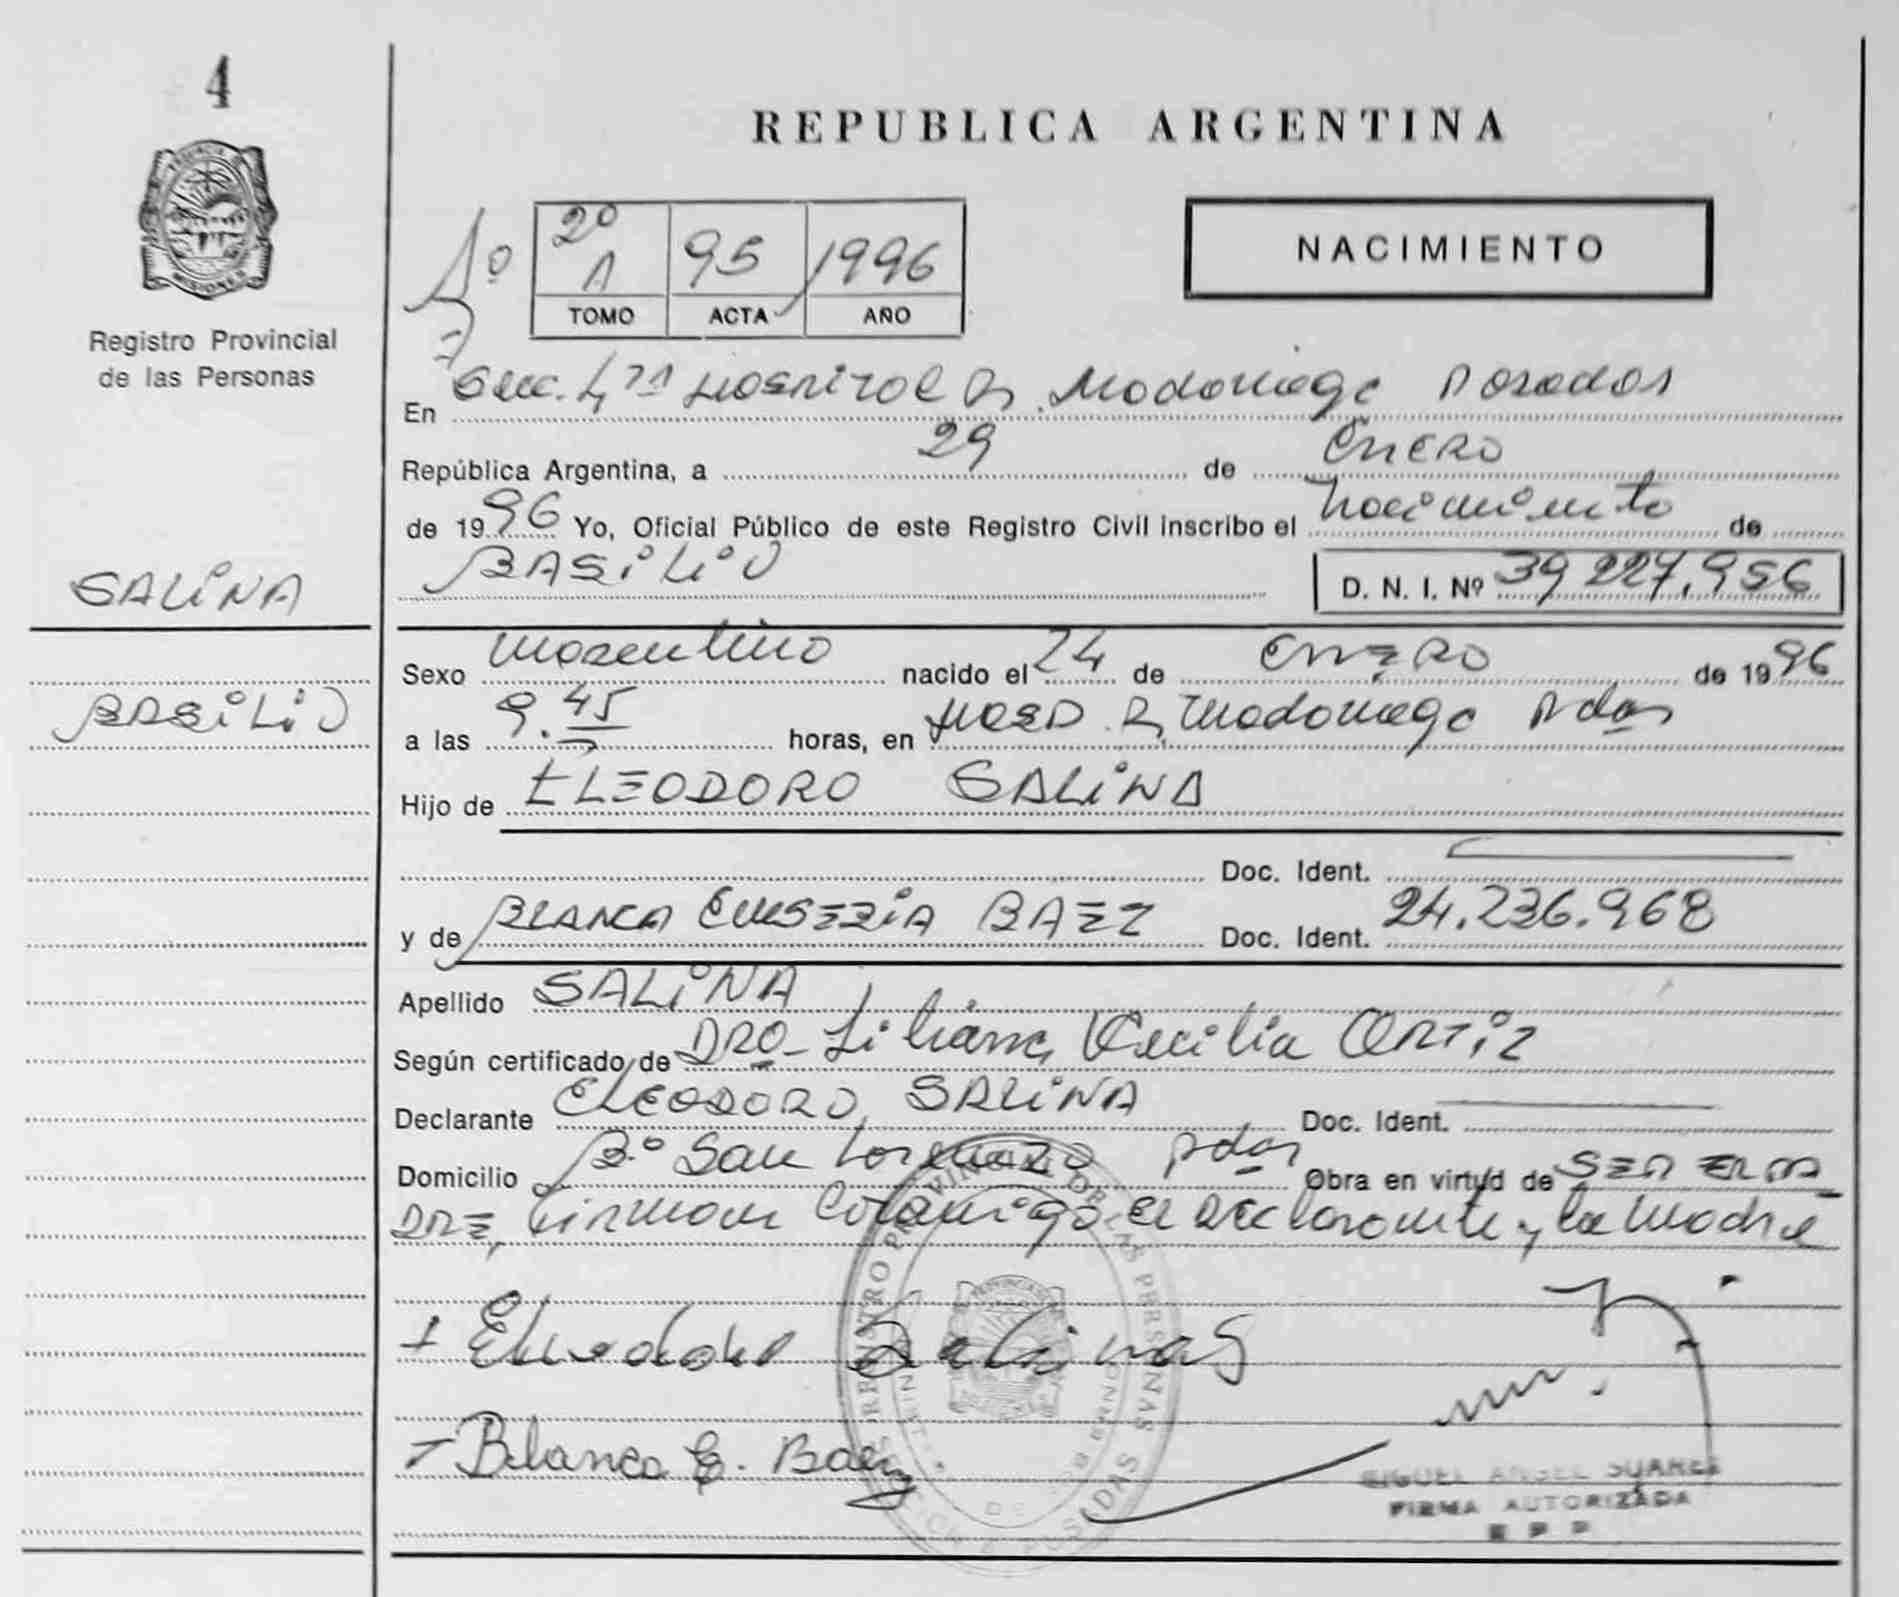 4
REPUBLICA ARGENTINA
2º A 95 1996
TOMO ACTA AÑO
NACIMIENTO
Registro Provincial
de las Personas
En Secc. 4ta Hospital R. Madariaga Posadas
República Argentina, a 29 de ENERO
de 1996 Yo, Oficial Público de este Registro Civil inscribo el nacimiento de
BASILIO D. N. I. Nº 39 227.956
SALINA
BASILIO
Sexo masculino nacido el 24 de ENERO de 1996
a las 9.45 horas, en HOSP. R. Madariaga Pdas
Hijo de ELEODORO SALINA
Doc. Ident.
y de BLANCA EUSEBIA BAEZ Doc. Ident. 24.236.968
Apellido SALINA
Según certificado de DRA- Liliana Cecilia ORTIZ
Declarante ELEODORO SALINA Doc. Ident.
Domicilio Bº San Lorenzo Pdas Obra en virtud de SER EL PA
DRE, Firman conmigo el Declarante y la madre
Eleodoro Salinas
Blanca E. Baez
REGISTRO PROVINCIAL DE LAS PERSONAS
MIGUEL ANGEL SUAREZ
FIRMA AUTORIZADA
R P P